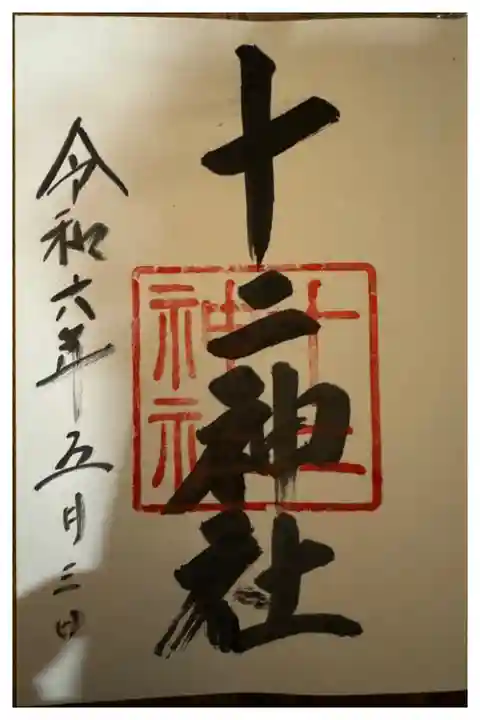 十二神社
十二神社
令和六年五月三日